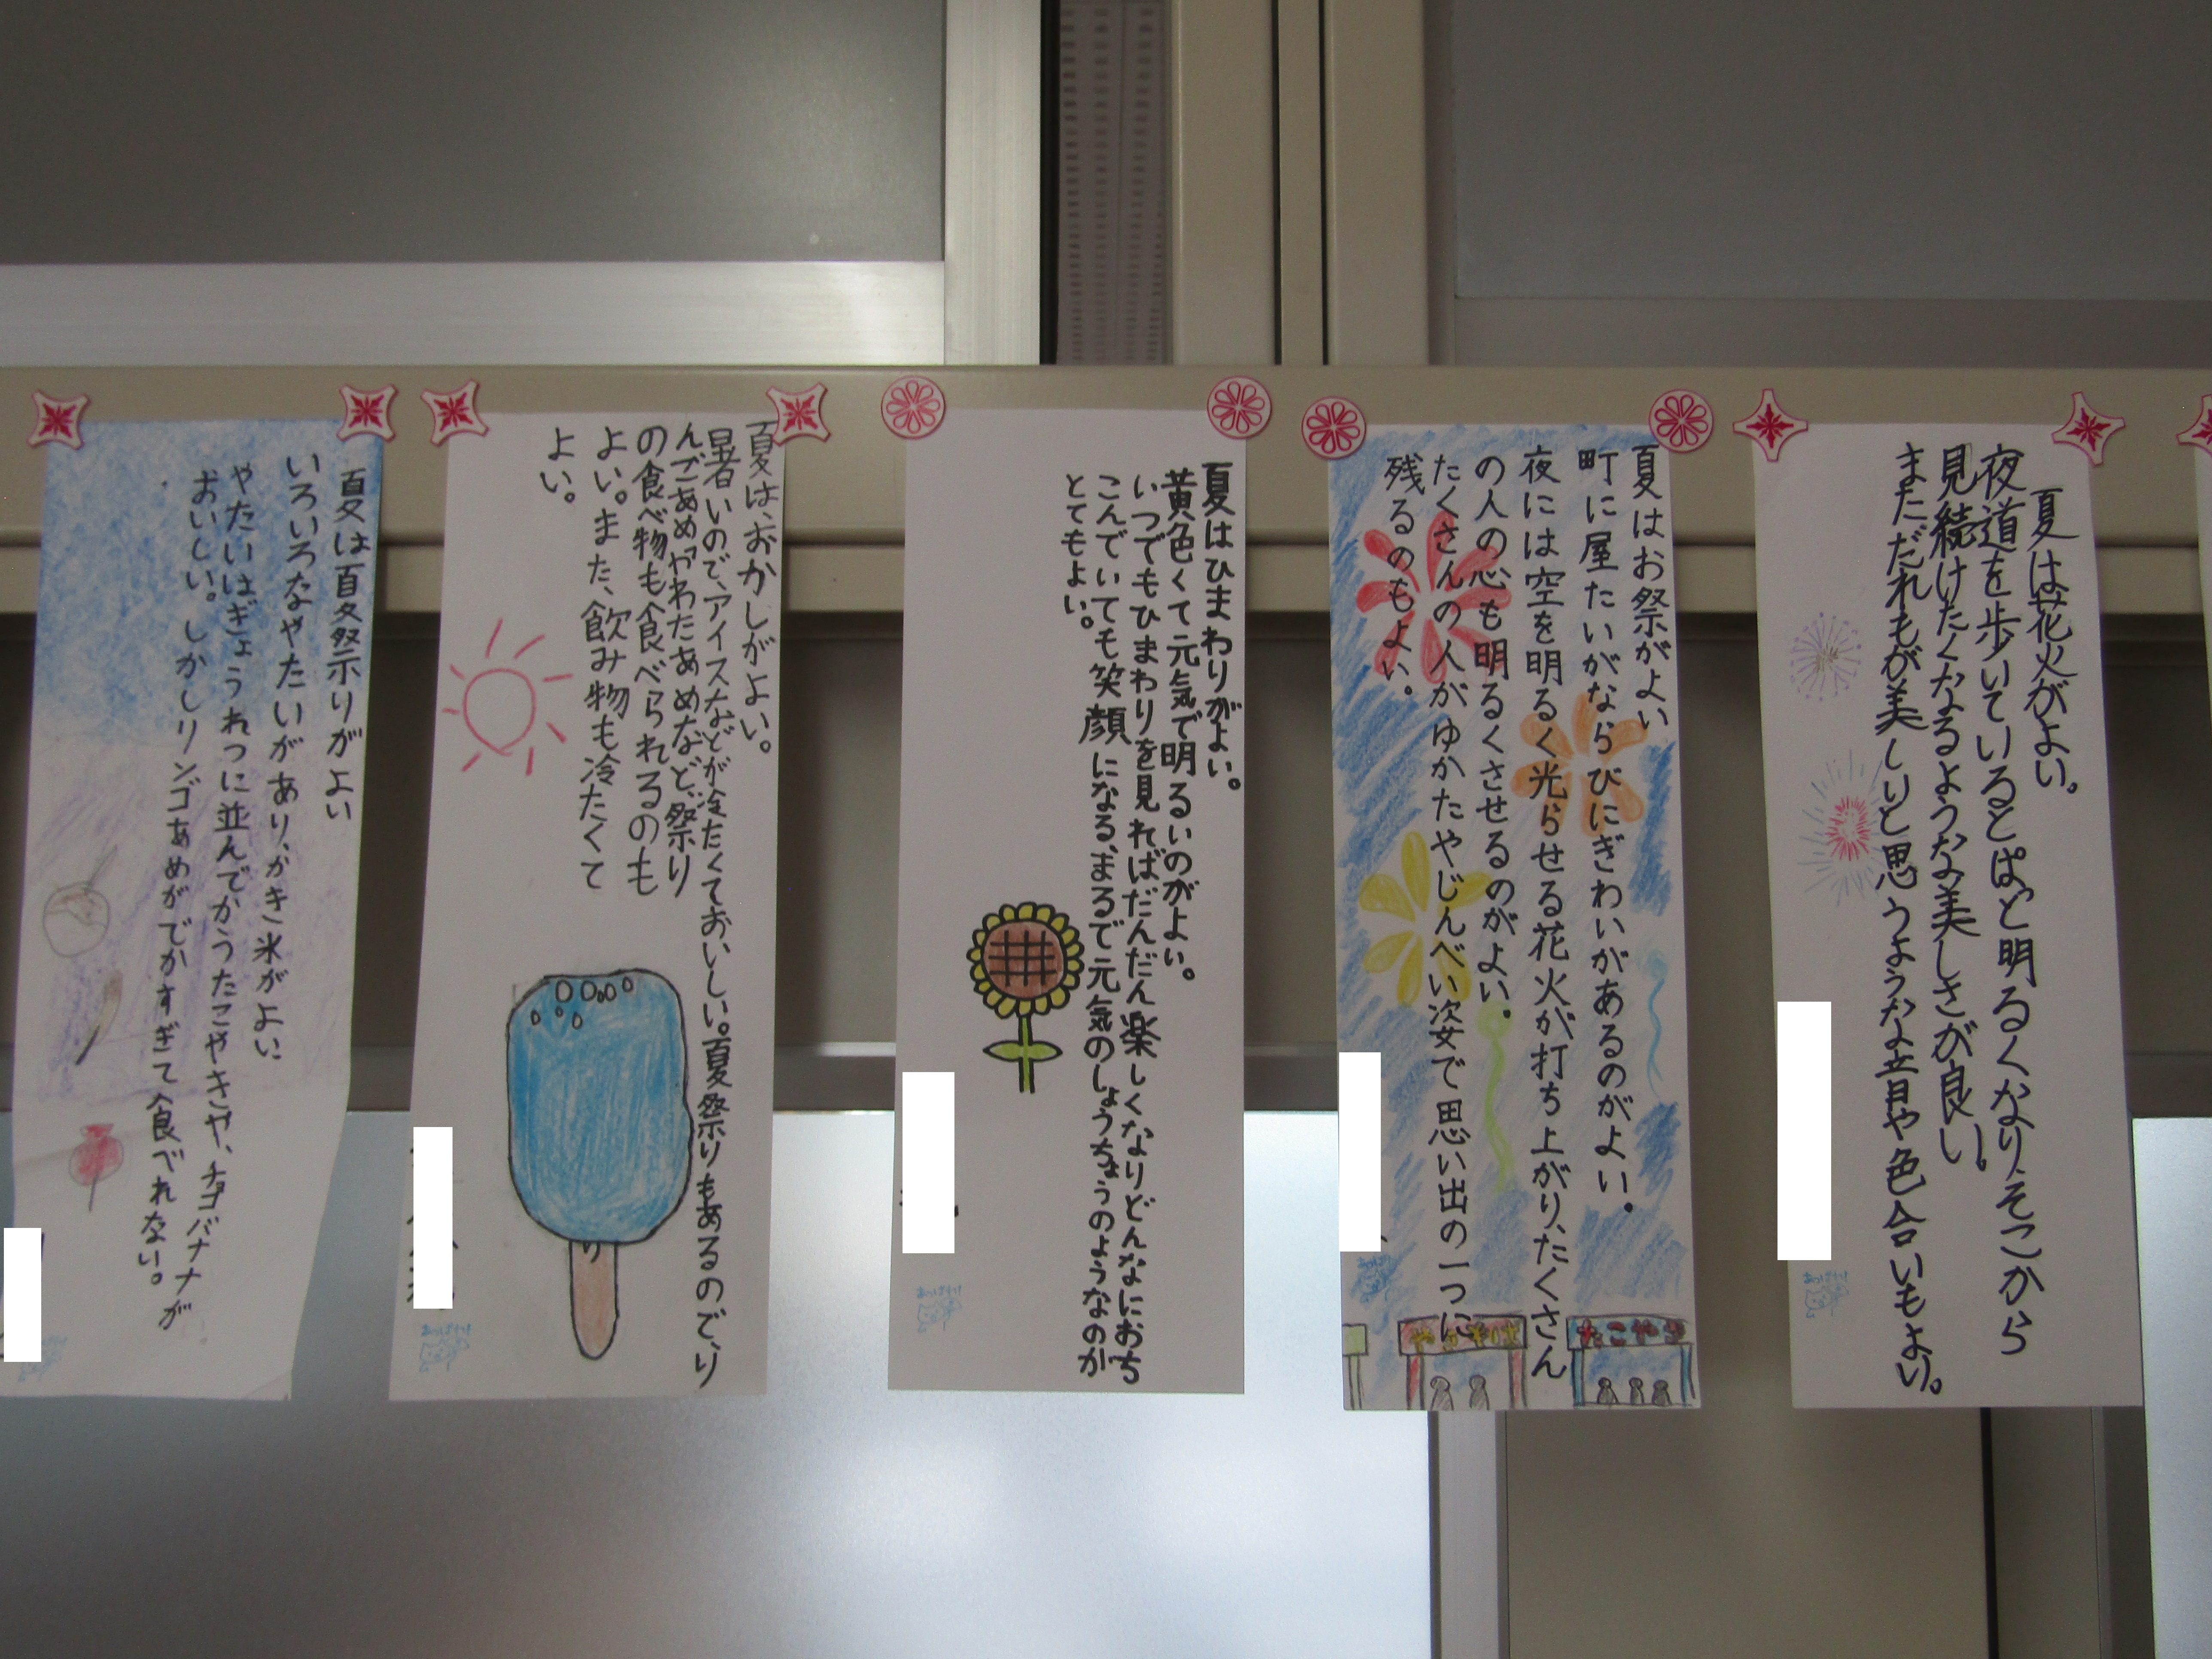 夏は花火がよい。
夜道を歩いているとぱっと明るくなり、そこから
見続けたくなるような美しさが良い。
まただれもが美しいと思うような音や色合いもよい。
夏はお祭がよい
町に屋たいがならびにぎわいがあるのがよい。
夜には空を明るく光らせる花火が打ち上がり、たくさん
の人の心も明るくさせるのがよい。
たくさんの人がゆかたやじんべい姿で思い出の一つに
残るのもよい。
やきそば
たこやき
夏はひまわりがよい。
黄色くて元気で明るいのがよい。
いつでもひまわりを見ればだんだん楽しくなりどんなにおち
こんでいても笑顔になる、まるで元気のしょうちょうのようなのが
とてもよい。
夏は、おかしがよい。
暑いので、アイスなどが冷たくておいしい。夏祭りもあるので、り
んごあめやわたあめなど、祭り
の食べ物も食べられるのも
よい。また、飲み物も冷たくて
よい。
夏は夏祭りがよい
いろいろなやたいがあり、かき氷がよい
やたいはぎょうれつに並んでかうたこやきや、チョコバナナが
おいしい。しかしリンゴあめがでかすぎて食べれない。